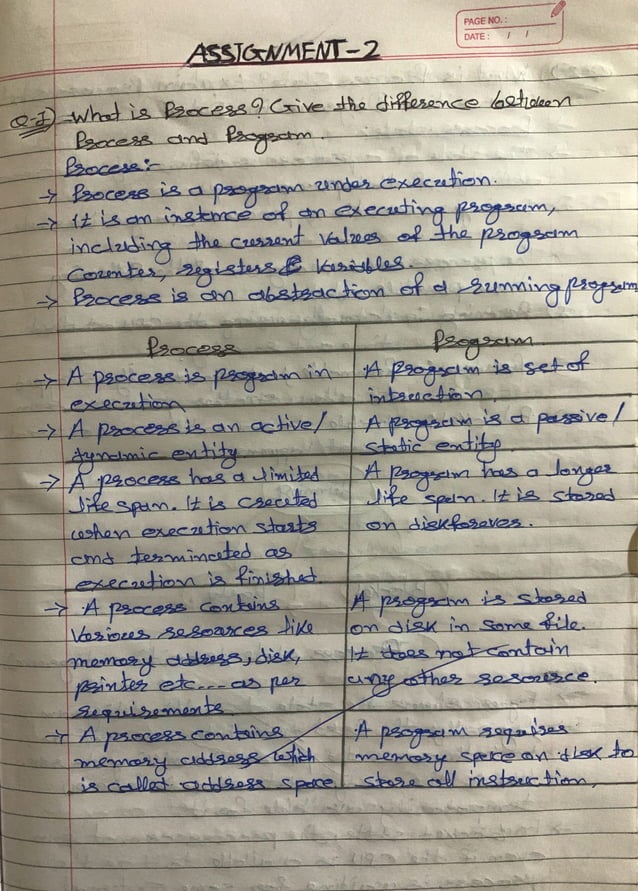 PAGE NO.:
DATE: / /
ASSIGNMENT-2
Q-1) What is Process? Give the difference between
Process and Program.
Process:-
→ Process is a program under execution.
→ It is an instance of an executing program,
including the current values of the program
Counter, registers & Variables.
→ Process is an abstraction of a running program
Process
Program
→ A process is program in
execution
A program is set of
intruction.
→ A process is an active/
dynamic entity
A program is a passive/
static entity
→ A process has a limited
life span. It is created
when execution starts
and terminated as
execution is finished
A program has a longer
life span. It is stored
on disk forever.
→ A process contains
Various resources like
memory address, disk,
printer etc... as per
requirements
A program is stored
on disk in some file.
It does not contain
any other resource.
→ A process contains
memory address which
is called address space
A program requires
memory space on disk to
store all instruction,